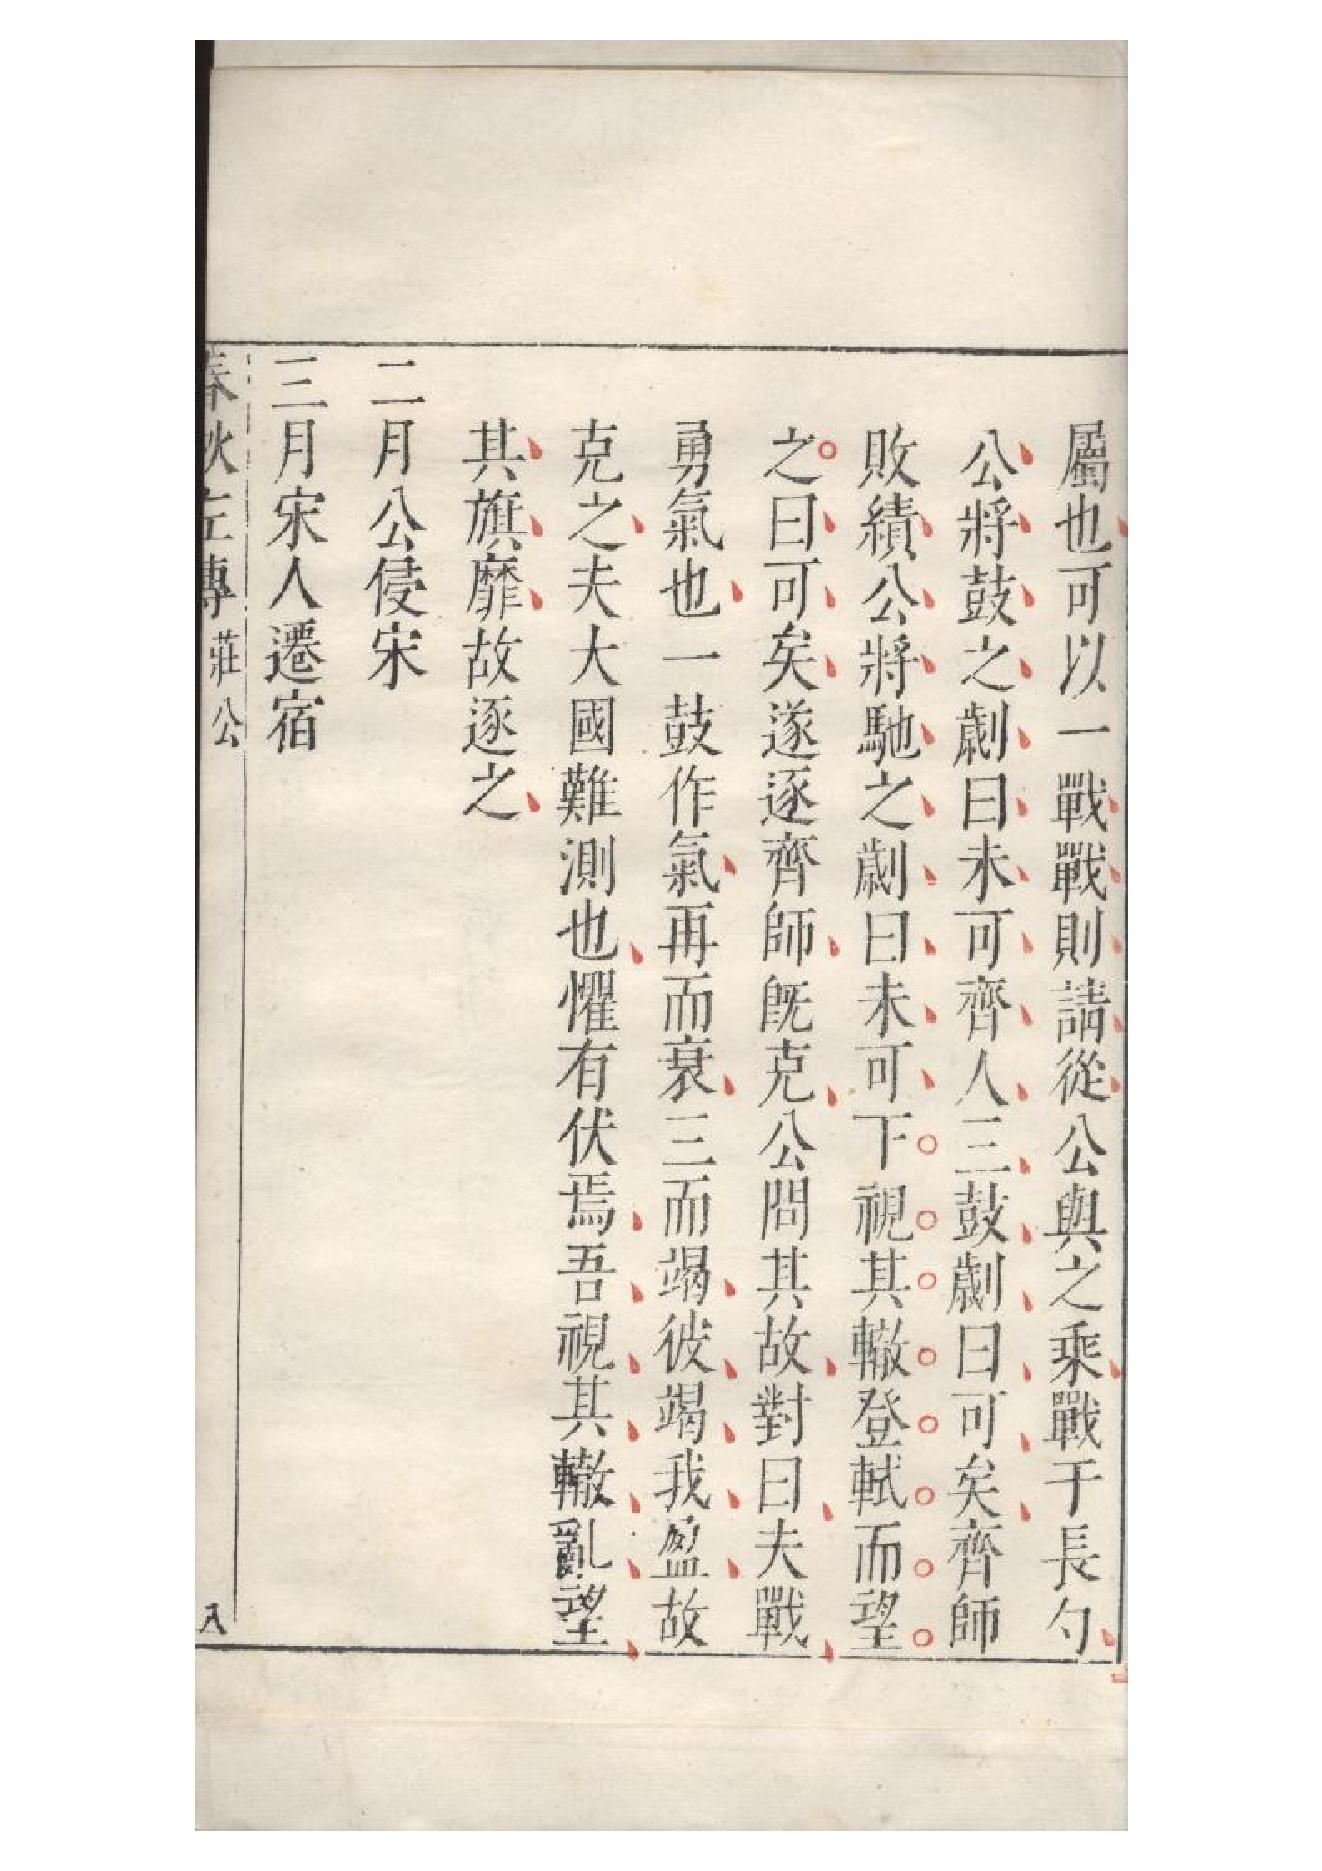 屬也可以一戰戰則請從公與之乘戰于長勺
公將鼓之劌曰未可齊人三鼓劌曰可矣齊師
敗績公將馳之劌曰未可下視其轍登軾而望
之曰可矣遂逐齊師既克公問其故對曰夫戰
勇氣也一鼓作氣再而衰三而竭彼竭我盈故
克之夫大國難測也懼有伏焉吾視其轍亂望
其旗靡故逐之
二月公侵宋
三月宋人遷宿
春秋左傳 莊公 八